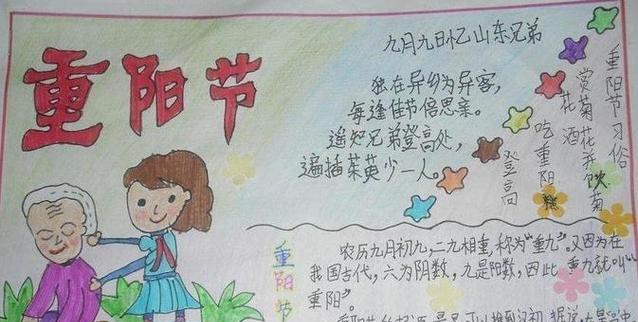 重阳节
九月九日忆山东兄弟
独在异乡为异客,
每逢佳节倍思亲。
遥知兄弟登高处,
遍插茱萸少一人。
重阳节习俗
赏菊花并饮菊
花酒
吃重阳糕
登高
重阳节
农历九月初九,二九相重,称为“重九”。又因为在
我国古代,六为阴数,九是阳数,因此,重九就叫“
重阳”。